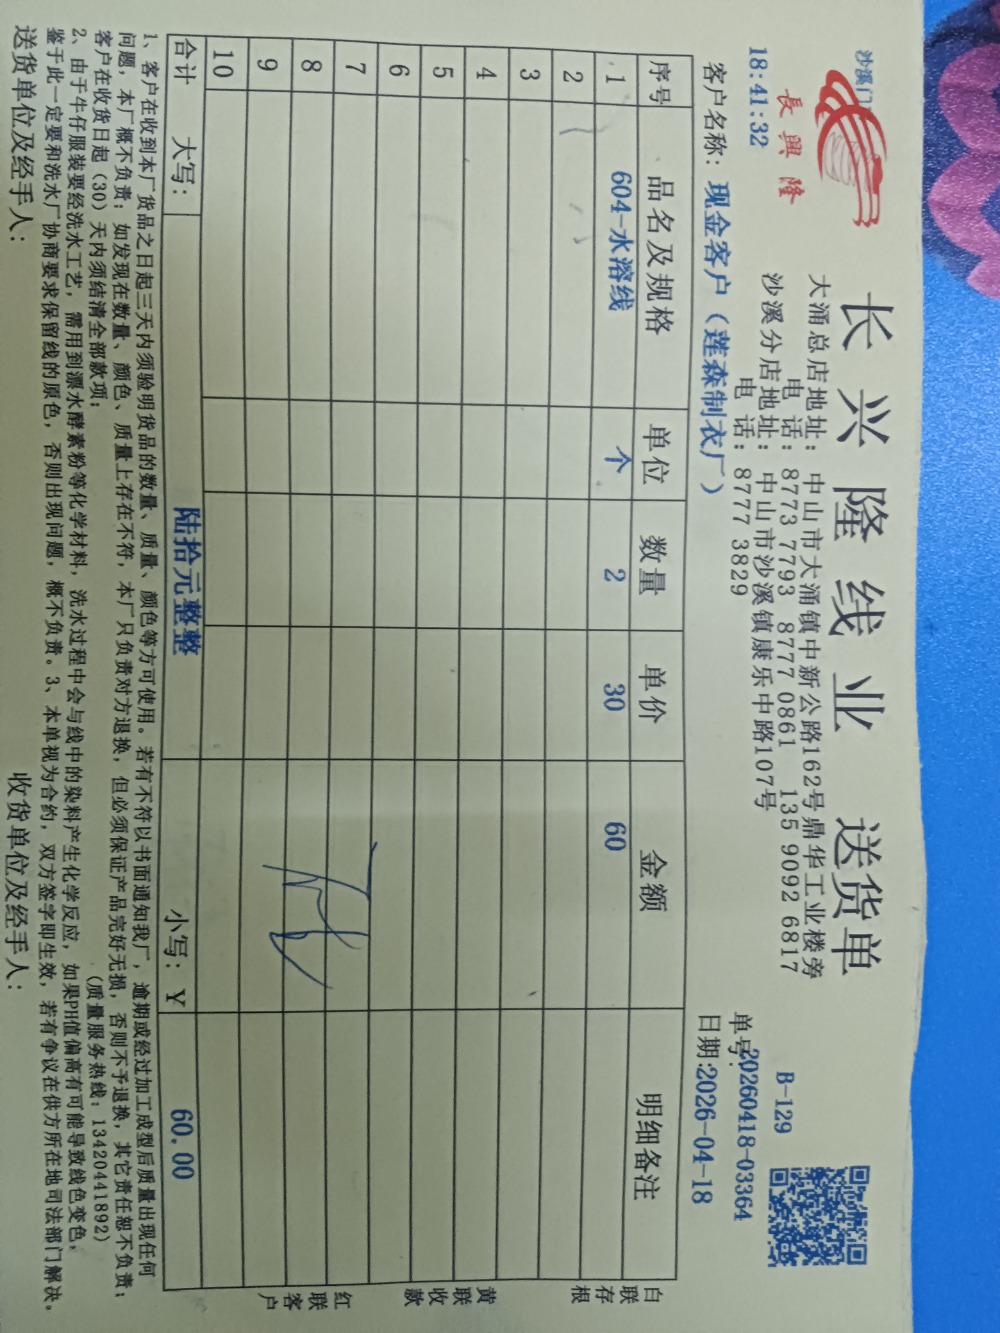 沙溪门
長興隆
18:41:32
长兴隆线业 送货单
大涌总店地址：中山市大涌镇中新公路162号鼎华工业楼旁
电 话：8773 7793 8777 0861 135 9092 6817
沙溪分店地址：中山市沙溪镇康乐中路107号
电 话：8777 3829
B-129
单号：20260418-03364
客户名称：现金客户（莲森制衣厂） 日期:2026-04-18
序号 品名及规格 单位 数量 单价 金额 明细备注
1 604-水溶线 个 2 30 60
2
3
4
5
6
7
8
9
10
合计 大写： 陆拾元整整 小写：￥ 60.00
白联存根
黄联收款
红联客户
1、客户在收到本厂货品之日起三天内须验明货品的数量、质量、颜色等方可使用。若有不符以书面通知我厂，逾期或经过加工成型后质量出现任何
问题，本厂概不负责；如发现在数量、颜色、质量上存在不符，本厂只负责对方退换，但必须保证产品完好无损，否则不予退换，其它责任恕不负责；
客户在收货日起（30）天内须结清全部款项； （质量服务热线：13420441892）
2、由于牛仔服装要经洗水工艺，需用到漂水酵素粉等化学材料，洗水过程中会与线中的染料产生化学反应，如果PH值偏高有可能导致线色变色，
鉴于此一定要和洗水厂协商要求保留线的原色，否则出现问题，概不负责。3、本单视为合约，双方签字即生效，若有争议在供方所在地司法部门解决。
送货单位及经手人： 收货单位及经手人：